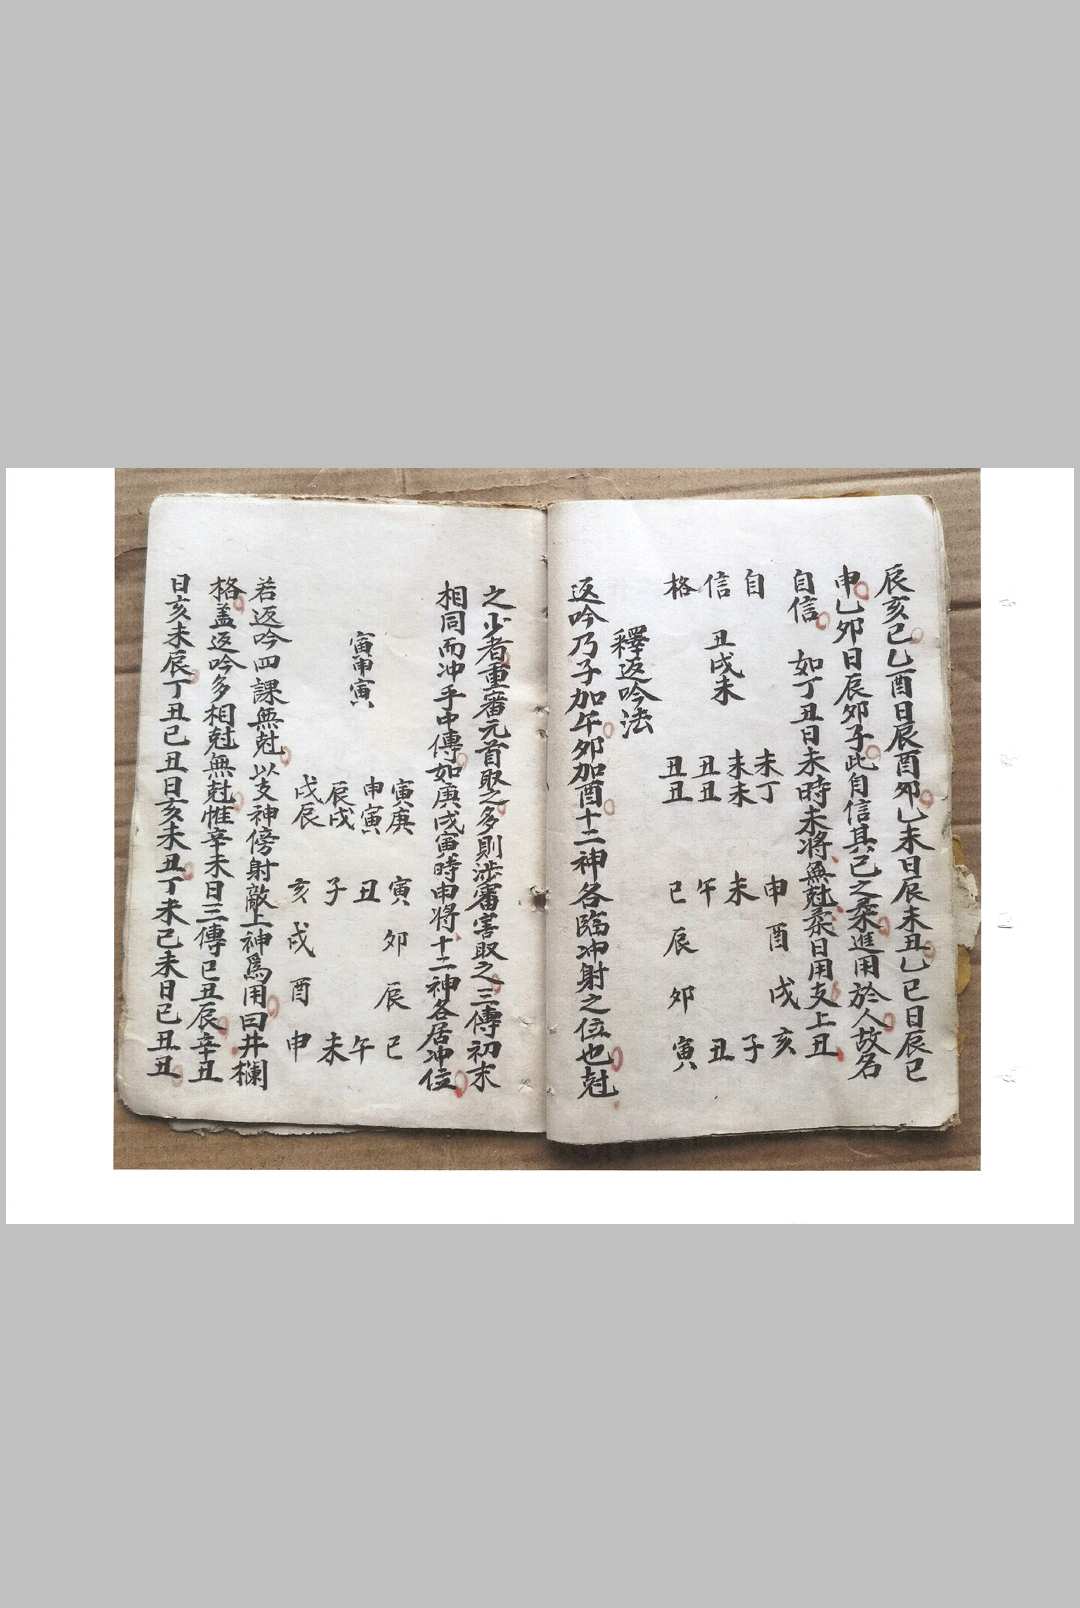 辰亥巳乙酉日辰酉卯乙未日辰未丑乙巳日辰巳
申乙卯日辰卯子此自信其己之柔進用於人故名
自信 如丁丑日未時未将無尅柔日用支上丑
自信格
丑戌未
未丁 未未 丑丑 丑丑
申酉戌亥
未 子
午 丑
巳辰卯寅
釋返吟法
返吟乃子加午卯加酉十二神各臨冲射之位也尅
之少者重審元首取之多則涉害取之三傳初末
相同而冲乎中傳如庚戌寅時申将十二神各居冲位
寅申寅
寅庚 申寅 辰戌 戌辰
寅卯辰巳
丑 午
子 未
亥戌酉申
若返吟四課無尅以支神傍射敵上神爲用曰井欄
格盖返吟多相尅無尅惟辛未日三傳巳丑辰辛丑
日亥未辰丁丑己丑日亥未丑丁未己未日巳丑丑